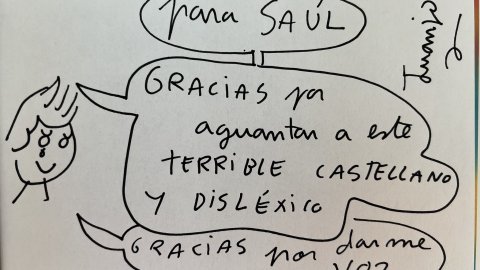 para SAÚL
GRACIAS por
aguantar a este
TERRIBLE CASTELLANO
Y DISLÉXICO
GRACIAS por darme
VOZ